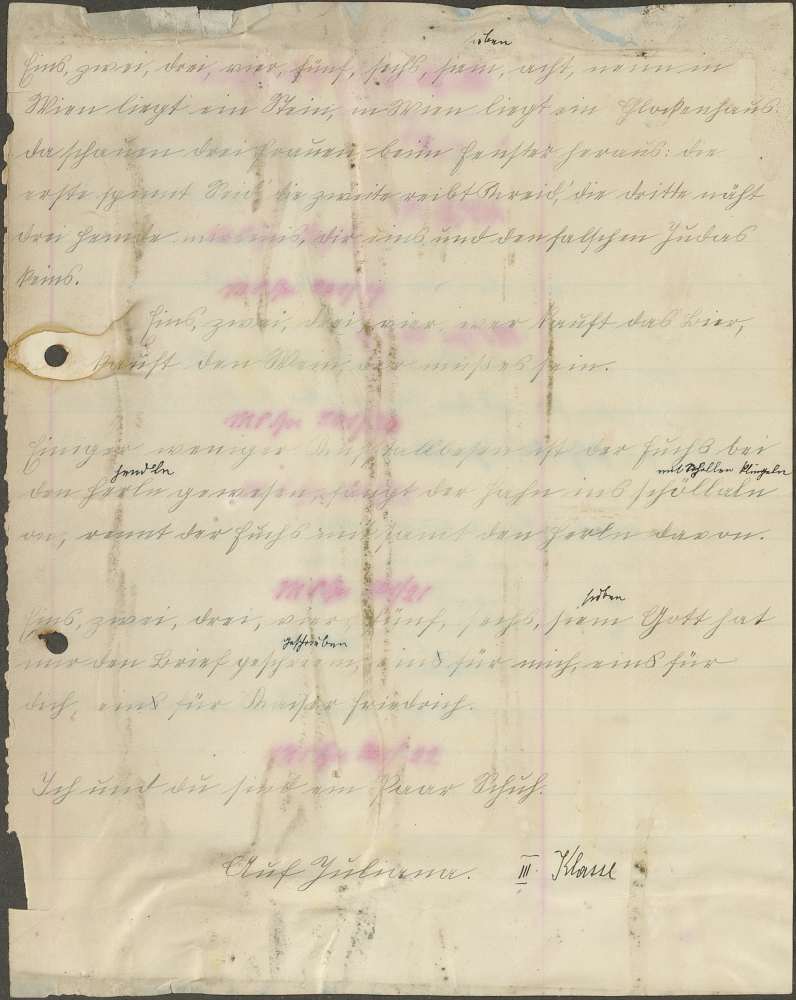 sieben
Eins, zwei, drei, vier, fünf, sechs, siem, acht, neun in
Wien liegt ein Stein, in Wien liegt ein Glockenhaus.
da schauen drei Frauen beim Fenster heraus: die
erste spinnt Seid' die zweite reibt Kreid,' die dritte näht
drei Hemde mir eins, dir eins und den falschen Judas
keins.
Eins, zwei, drei, vier, wer kauft das Bier,
kauft den Wein, der muß es sein.
Einiger weniger ist der Fuchs bei
hendeln mit Schellen klingeln
den Herln gewesen, fangt der Hahn ins schöllaln
an, rennt der Fuchs mitsamt den Herln davon.
sieben
Eins, zwei, drei, vier, fünf, sechs, siem Gott hat
geschrieben
mir den Brief geschriem, eins für mich, eins für
dich, eins für Kaiser Friedrich.
Ich und du sind ein Paar Schuh.
Auf Juliana. III. Klasse